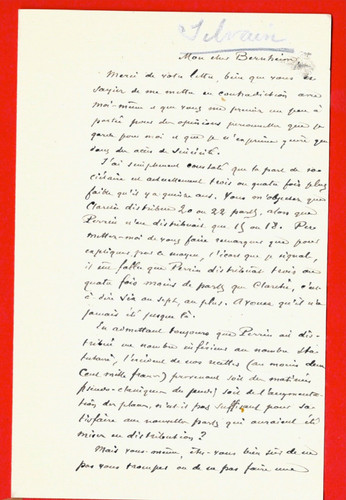 Silvain
Mon cher Bernheim,
Merci de votre lettre, bien que vous es-
sayiez de me mettre en contradiction avec
moi-même et que vous me preniez un peu à
partie pour des opinions personnelles que je
garde pour moi et que je n'exprime guère que
dans des accès de sincérité.
J'ai simplement constaté que la part de so-
ciétaire est actuellement trois ou quatre fois plus
faible qu'il y a quinze ans. Vous m'objectez que
Claretie distribue 20 ou 22 parts, alors que
Perrin n'en distribuait que 15 ou 18. Per-
mettez-moi de vous faire remarquer que pour
expliquer, par ce moyen, l'écart que je signale,
il eût fallu que Perrin distribuât trois ou
quatre fois moins de parts que Claretie, c'est-
à-dire six ou sept, au plus. Avouez qu'il n'en a
jamais été jusque là.
En admettant toujours que Perrin ait dis-
tribué un nombre inférieur au nombre sta-
tutaire, l'excédent de nos recettes (au moins deux
cent mille francs) provenant soit des matinées
pseudo-classiques du jeudi, soit de l'augmenta-
tion des places, n'est-il pas suffisant pour sa-
tisfaire aux nouvelles parts qui auraient été
mises en distribution ?
Mais vous-même, êtes-vous bien sûr de ne
pas vous tromper ou de ne pas faire une